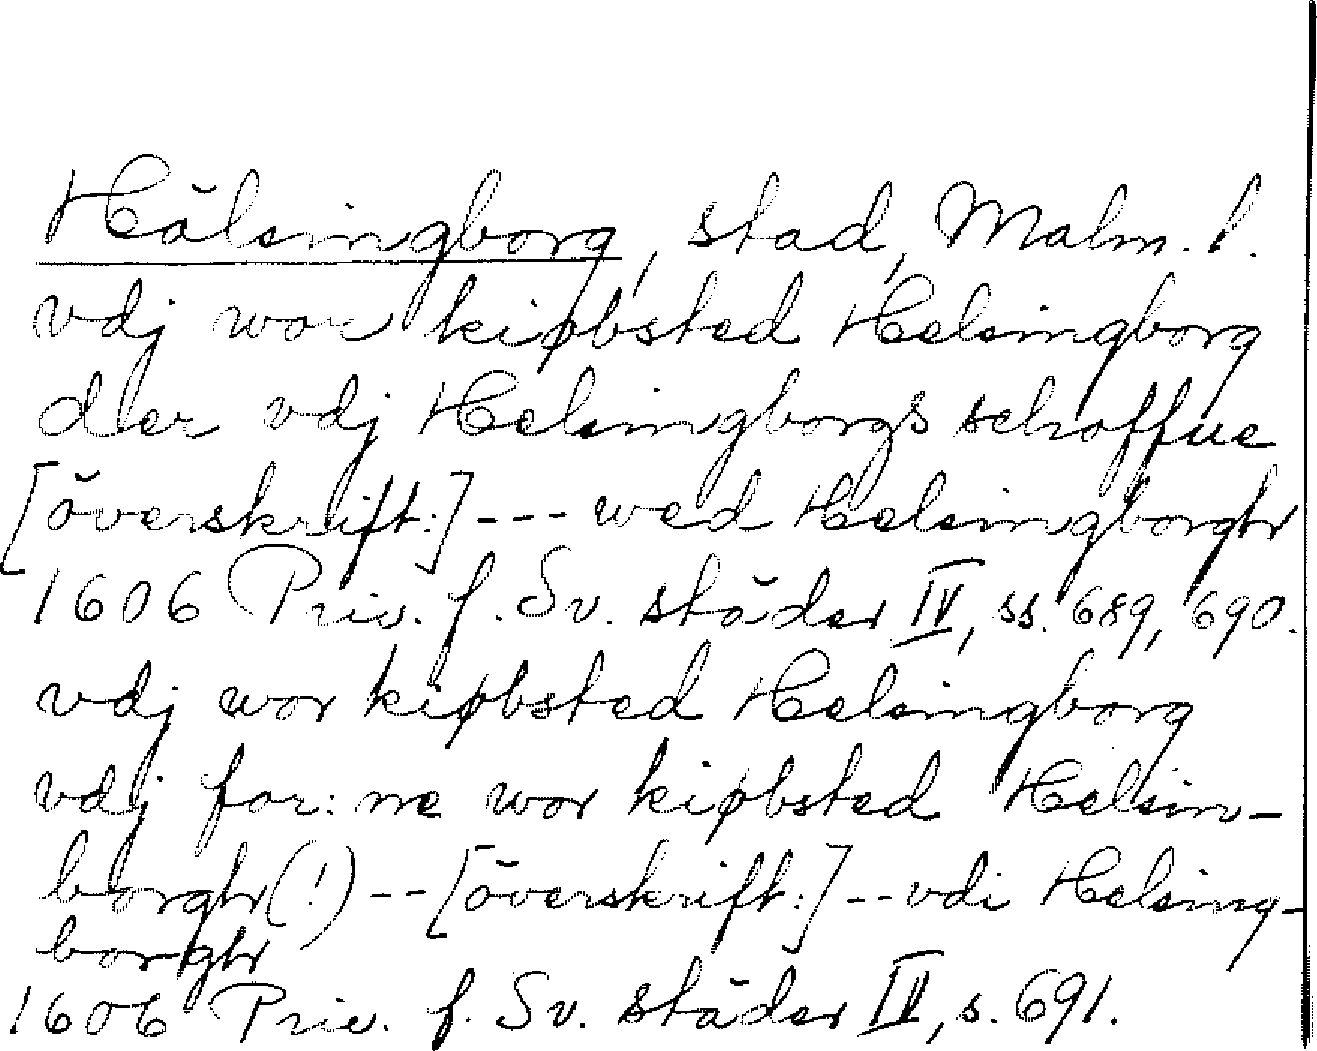 Hälsingborg, stad, Malm. l.
vdj wor kiøbsted Helsingborg
der vdj Helsingborgs schoffue
[överskrift:] --- wed Helsingborghr
1606 Priv. f. Sv. städer IV, ss. 689, 690.
vdj wor kiøbsted Helsingborg
vdj for: ne wor kiøbsted Helsin-
borghr (!) -- [överskrift:] -- vdi Helsing-
borghr
1606 Priv. f. Sv. städer IV, s. 691.